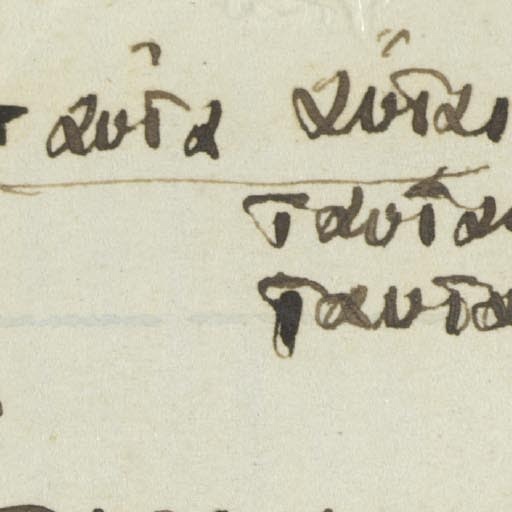 ταῦτα αὗται
ταυτα
ταυτα